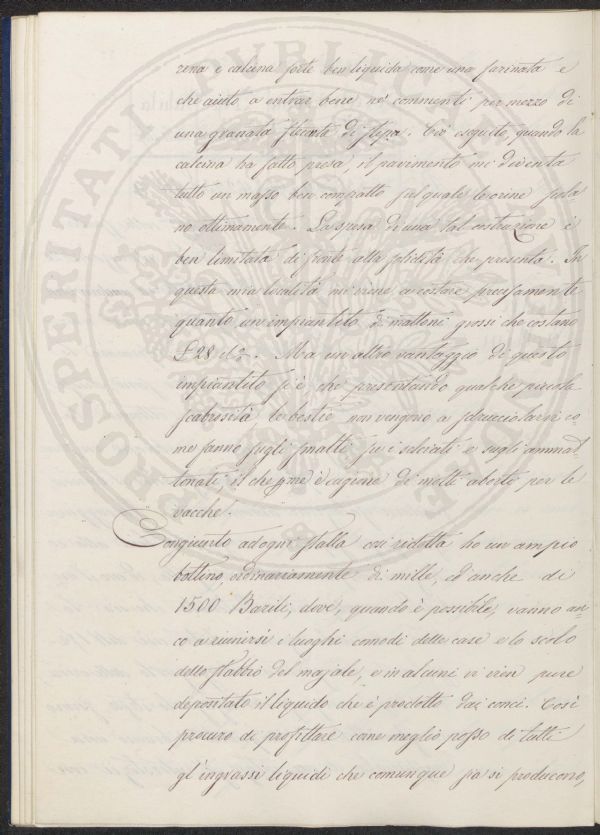 rena e calcina forte ben liquida come una farinata e
che aiuto a entrar bene ne' commenti per mezzo di
una granata fissata di stipa. Ciò eseguito, quando la
calcina ha fatto presa, il pavimento mi diventa
tutto un masso ben compatto sul quale le orine scola
no ottimamente. La spesa di una tal costruzione è
ben limitata di fronte alla solidità che presenta. In
questa mia località mi viene a costare precisamente
quanto un impiantito di mattoni grossi che costano
£ 28 il %. Ma un altro vantaggio di questo
impiantito si è che presentando qualche piccola
scabrosità le bestie non vengono a sdrucciolarvi co=
me fanno sugli smalti su i selciati e sugli ammat=
tonati; il che pure è cagione di molti aborti per le
vacche.
Congiunto ad ogni stalla così ridotta ho un ampio
bottino, ordinariamente di mille, ed anche di
1500 Barili, dove, quando è possibile, vanno an=
co a riunirsi i luoghi comodi delle case e lo scolo
dello stabbio del majale, e in alcuni vi vien pure
depositato il liquido che è prodotto dai conci. Così
procuro di profittare come meglio posso di tutti
gl'ingrassi liquidi che comunque sia si producono,
PROSPERITATI PVBLICAE